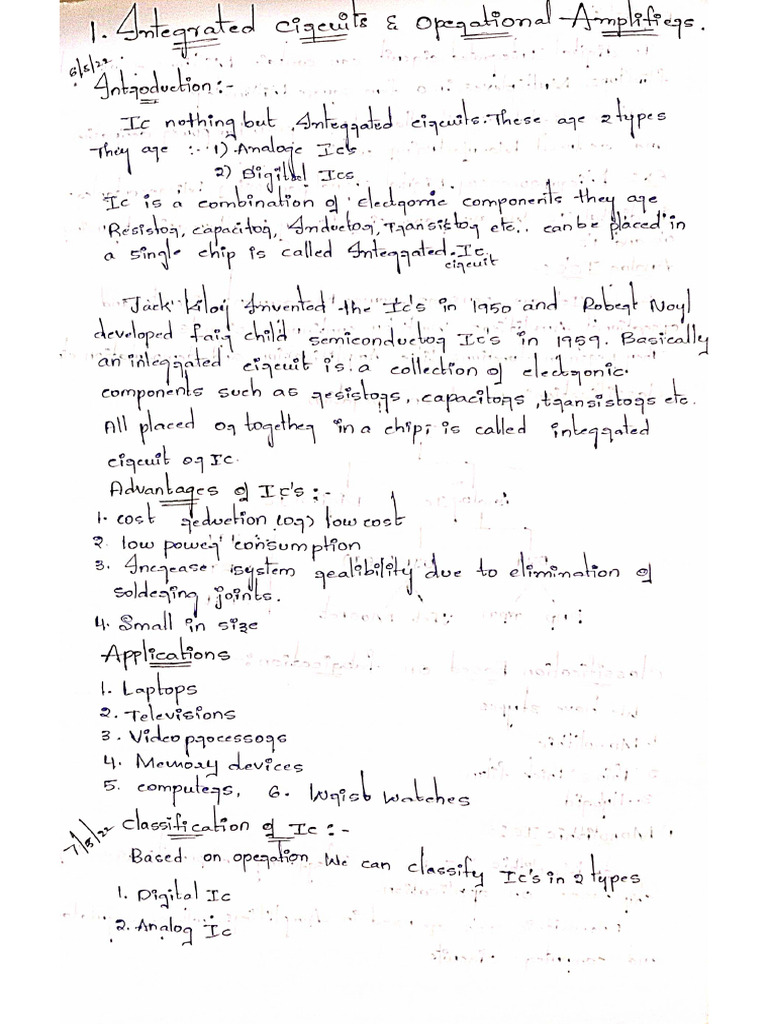 1. Integrated Circuits & Operational Amplifiers.
6/5/22
Introduction :-
Ic nothing but Integrated circuits. These are 2 types
They are :- 1) Analoge Ic's
2) Digital Ics
Ic is a combination of electronic components they are
Resistor, capacitor, Inductor, Transistor etc.. can be placed in
a single chip is called Integrated Ic.
circuit
Jack kiloy Invented the Ic's in 1950 and Robert Noyl
developed fair child semiconductor Ic's in 1959. Basically
an integrated circuit is a collection of electronic
components such as resistors, capacitors, transistors etc.
All placed or together in a chip; is called integrated
circuit or Ic.
Advantages of Ic's :-
1. cost reduction (or) low cost
2. low power consumption
3. Increase system realibility due to elimination of
soldering joints.
4. Small in size
Applications
1. Laptops
2. Televisions
3. Video processors
4. Memory devices
5. computers, 6. Wrist watches
7/5/22 Classification of Ic :-
Based on operation We can classify Ic's in 2 types
1. Digital Ic
2. Analog Ic